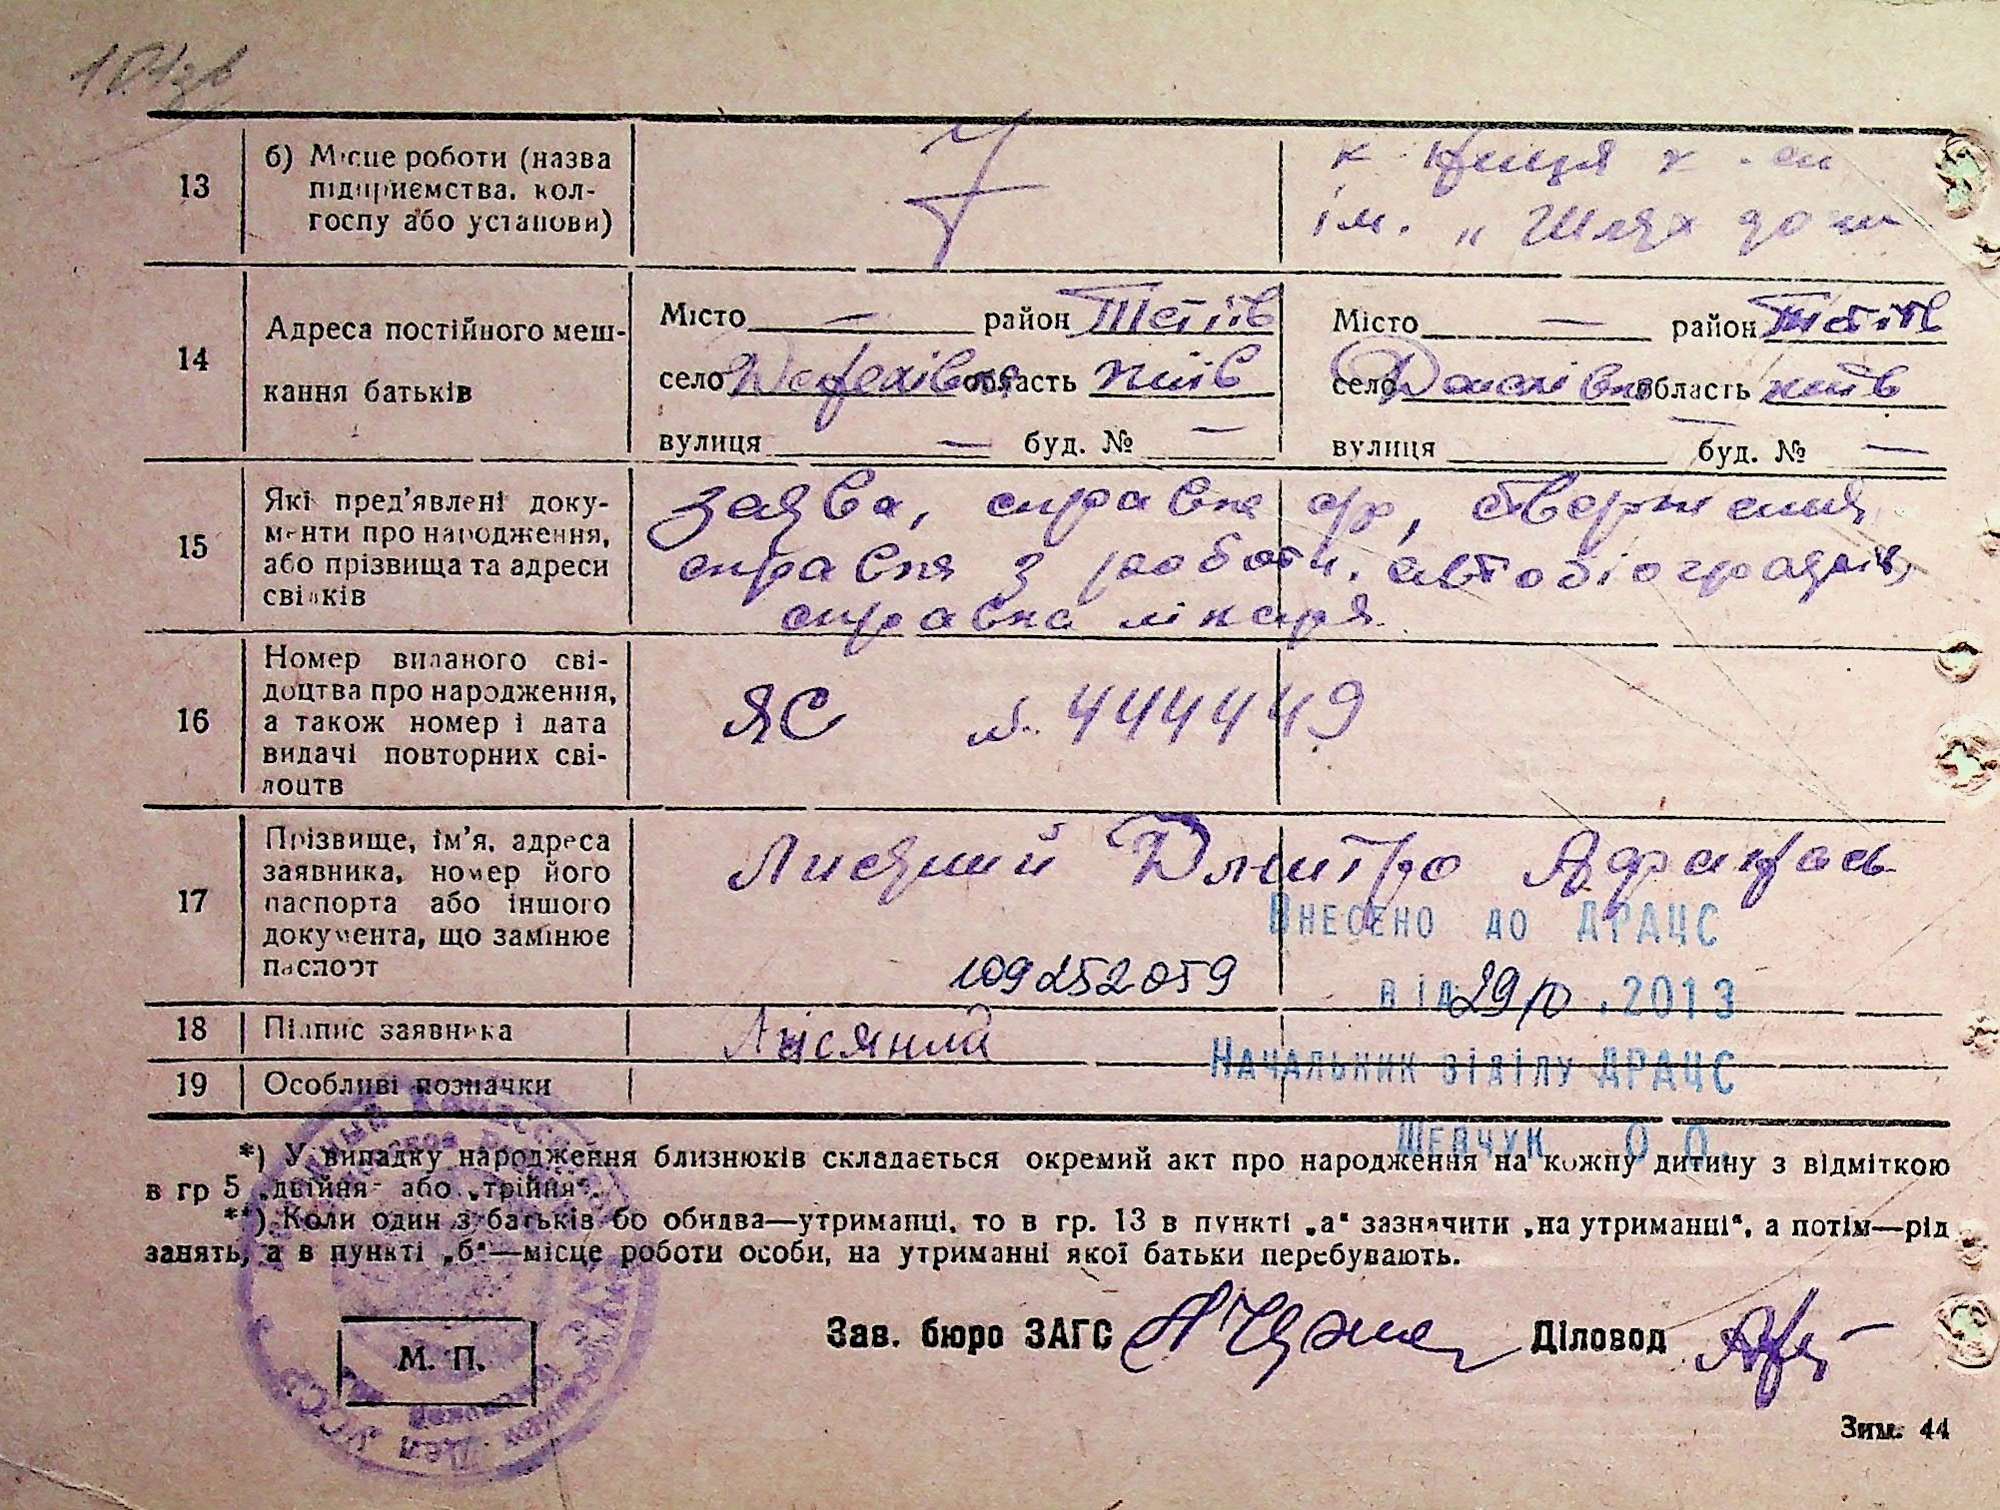 13 б) Місце роботи (назва
підприємства, кол-
госпу або установи)
ім. „Шлях до
14 Адреса постійного меш-
кання батьків
Місто — район Тетіїв
село область Київ
вулиця — буд. № —
Місто — район Тетіїв
село область Київ
вулиця — буд. № —
15 Які пред'явлені доку-
менти про народження,
або прізвища та адреси
свідків
заява, справка ствержения
справка з роботи, автобіографія,
справка лікаря
16 Номер виданого сві-
доцтва про народження,
а також номер і дата
видачі повторних сві-
доцтв
ЯС № 444449
17 Прізвище, ім'я, адреса
заявника, номер його
паспорта або іншого
документа, що замінює
паспорт
Дмитро
109252059
Внесено до ДРАЦС
від 29/10.2013
18 Підпис заявника
Начальник відділу ДРАЦС
19 Особливі позначки
Шевчук О.О.
*) У випадку народження близнюків складається окремий акт про народження на кожну дитину з відміткою
в гр 5 „двійня“ або „трійня“.
**) Коли один з батьків бо обидва—утриманці, то в гр. 13 в пункті „а“ зазначити „на утриманні“, а потім—рід
занять, а в пункті „б“—місце роботи особи, на утриманні якої батьки перебувають.
Зав. бюро ЗАГС
Діловод
М. П.
Зим. 44